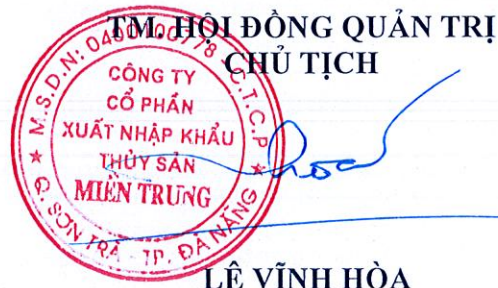 TM. HỘI ĐỒNG QUẢN TRỊ
CHỦ TỊCH
M.S.D.N: 0400100778 - C.T.C.P
CÔNG TY
CỔ PHẦN
XUẤT NHẬP KHẨU
THỦY SẢN
MIỀN TRUNG
Q. SƠN TRÀ - TP. ĐÀ NẴNG
LÊ VĨNH HÒA